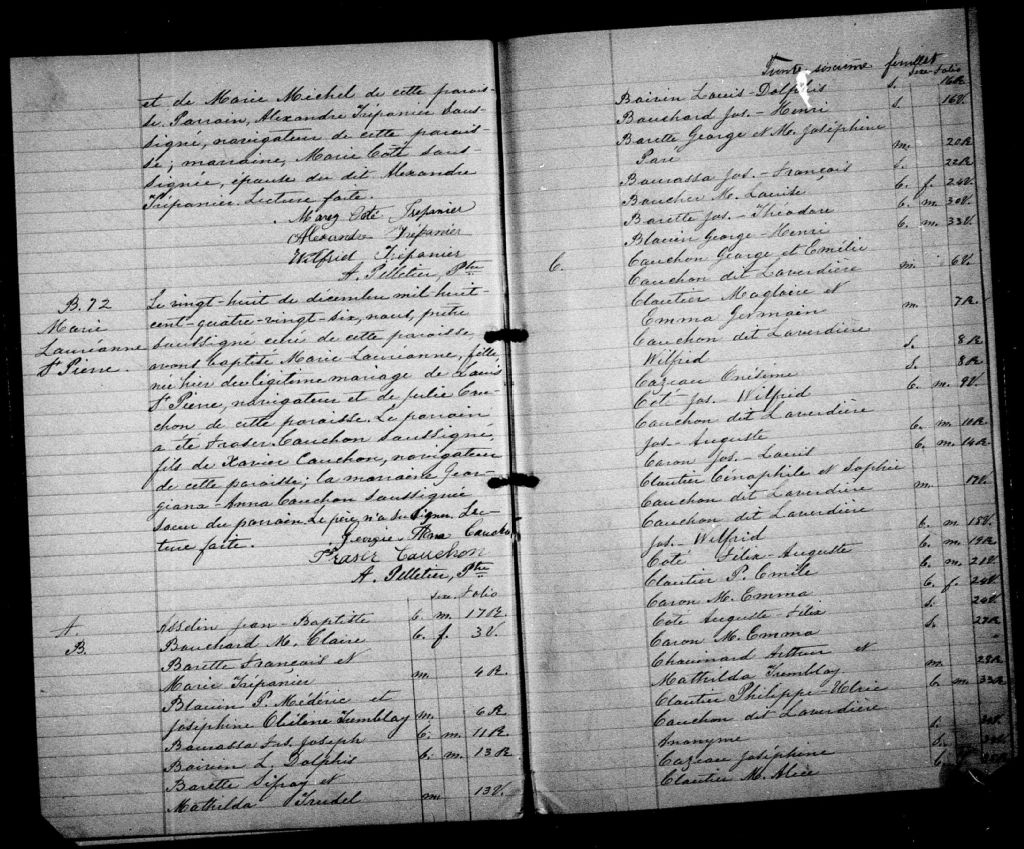 et de Marie Michel de cette parois-
se. Parrain, Alexandre Trépanier sous-
signé, navigateur de cette parois-
se; marraine, Marie Coté sous-
signée, épouse du dit Alexandre
Trépanier. Lecture faite.
Mary Coté Trepanier
Alexandre Trépanier
Wilfrid Trépanier
A. Pelletier, Ptre
B. 72
Marie
Lauréanne
St Pierre.
Le vingt-huit de décembre mil huit-
cent-quatre-vingt-six, nous, prêtre
soussigné curé de cette paroisse,
avons baptisé Marie Lauréanne, fille
née hier du légitime mariage de Louis
St Pierre, navigateur et de Julie Cau-
chon de cette paroisse. Le parrain
a été Fraser Cauchon soussigné,
fils de Xavier Cauchon, navigateur
de cette paroisse; la marraine Geor-
giana-Anna Cauchon soussignée
soeur du parrain. Le père n'a su signer. Lec-
ture faite.
Georgie Anna Cauchon
Fraser Cauchon
A. Pelletier, Ptre
sexe Folio
A. Asselin Jean-Baptiste b. m. 17R.
B. Bouchard M. Claire b. f. 3V.
Barette François et
Marie Trépanier m. 4R.
Blouin P. Médéric et
Joséphine Tremblay m. 6R.
Bourassa Jos. Joseph b. m. 11R.
Boivin L. Dolphis b. m. 13R
Barette et
Mathilda Trudel m 13V.
Trente-sixième feuillet
Sexe Folio
Boivin Louis-Dolphis s. 16R.
Bouchard Jos.-Henri s. 16V.
Barette George et M. Joséphine
Paré m. 20R
Bourassa Jos.-François s. 22R
Boucher M. Louise b. f. 24V.
Barette Jos.-Théodore b. m. 30V.
Blouin George-Henri b. m. 33V.
C. Cauchon George et Emélie
Cauchon dit Laverdière m. 6V.
Cloutier Magloire et
Emma Germain m. 7R.
Cauchon dit Laverdière
Wilfrid s. 8R
Cazeau Onésime s. 8R
Coté Jos. Wilfrid b. m. 9V.
Cauchon dit Laverdière
Jos.-Auguste b. m. 10R
Caron Jos.-Louis b. m. 14R.
Cloutier Cénophile et Sophie
Cauchon dit Laverdière m. 17V.
Cauchon dit Laverdière
Jos.-Wilfrid b. m. 18V.
Coté Félix-Auguste b. m. 19R
Cloutier P. Emile b. m. 21V
Caron M. Emma b. f. 24V
Coté Auguste-Félix s. 24V
Caron M. Emma s. 27R
Chouinard Arthur et
Mathilda Tremblay m. 28R
Cloutier Philippe-Ulric b. m. 33R
Cauchon dit Laverdière
Anonyme s.
Cazeau Joséphine s.
Cloutier M. Alice b. f.